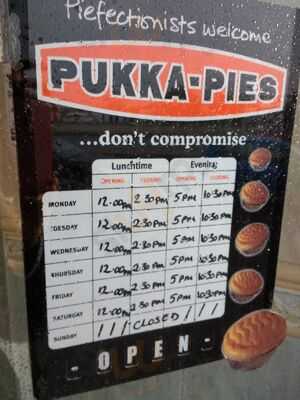 Piefectionists welcome
PUKKA-PIES
...don't compromise
Lunchtime Evening
OPENING CLOSING OPENING CLOSING
MONDAY 12.00pm 2.30pm 5pm 10:30pm
TUESDAY 12.00pm 2.30pm 5pm 10:30pm
WEDNESDAY 12.00pm 2.30pm 5pm 10:30pm
THURSDAY 12.00pm 2.30pm 5pm 10:30pm
FRIDAY 12.00pm 2.30pm 5pm 10:30pm
SATURDAY 12.00pm 2.30pm 5pm 10:30pm
SUNDAY / / / CLOSED / / /
- OPEN -